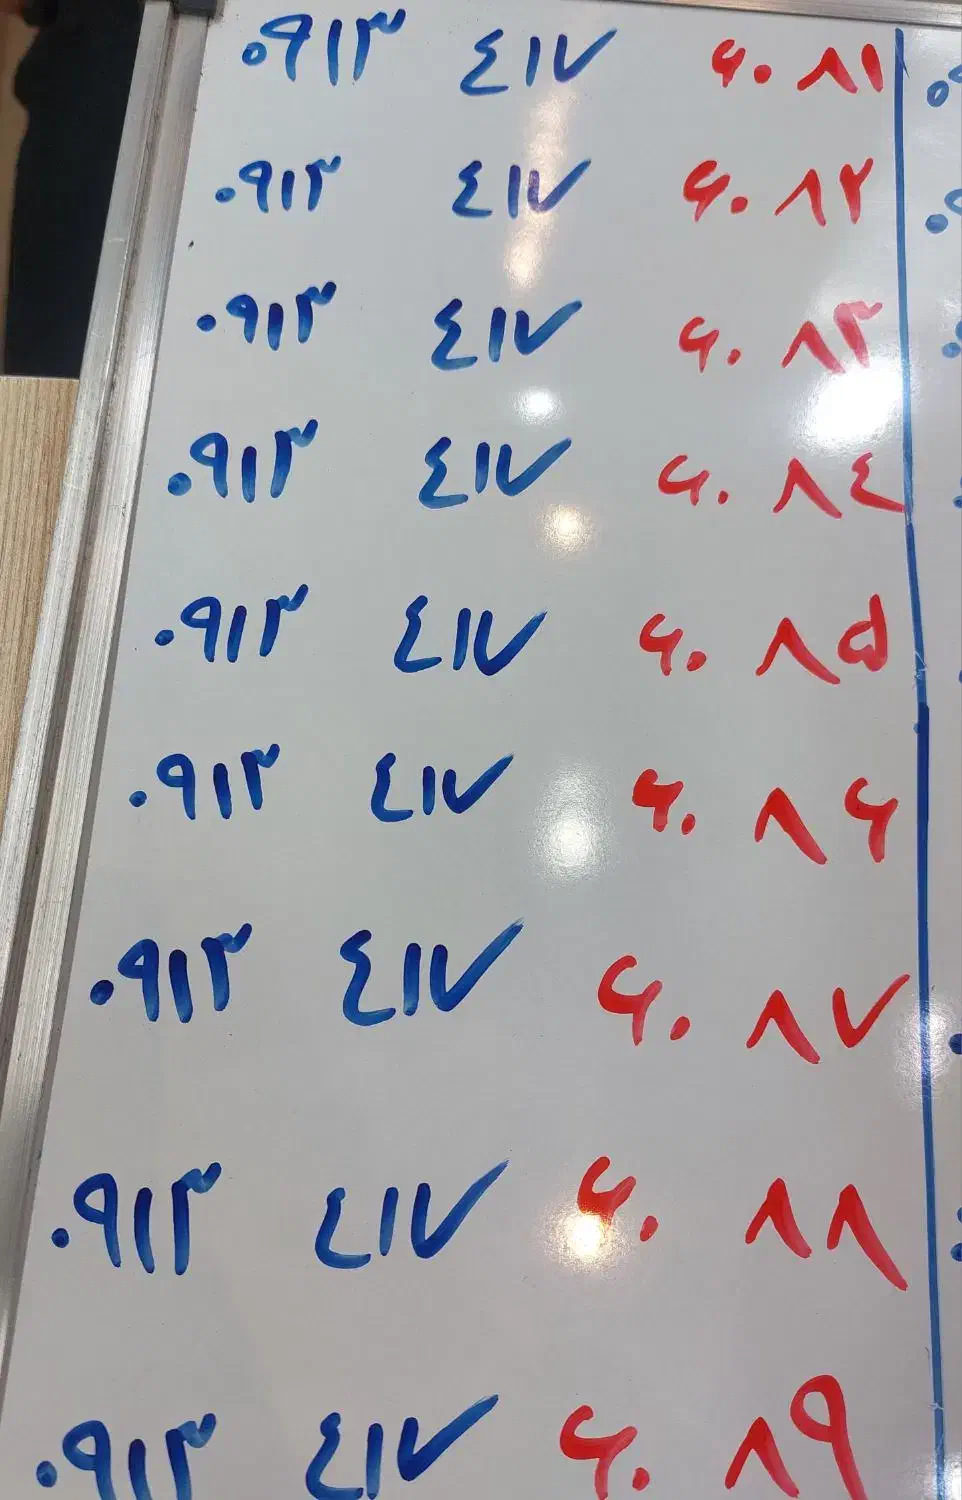 ۰۹۱۳ ٤۱۷ ۶۰ ۸۱
۰۹۱۳ ٤۱۷ ۶۰ ۸۲
۰۹۱۳ ٤۱۷ ۶۰ ۸۳
۰۹۱۳ ٤۱۷ ۶۰ ۸٤
۰۹۱۳ ٤۱۷ ۶۰ ۸۵
۰۹۱۳ ٤۱۷ ۶۰ ۸۶
۰۹۱۳ ٤۱۷ ۶۰ ۸۷
۰۹۱۳ ٤۱۷ ۶۰ ۸۸
۰۹۱۳ ٤۱۷ ۶۰ ۸۹